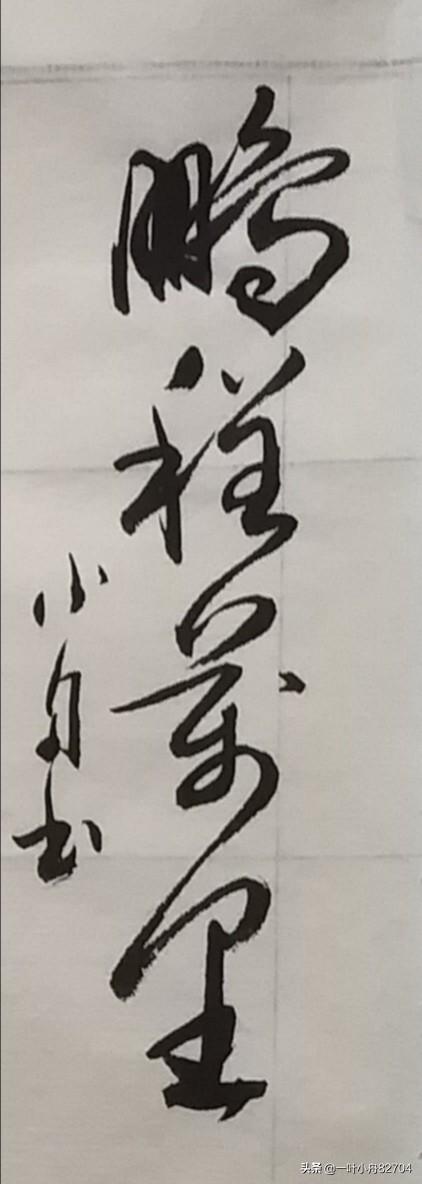 鹏程萬里
小舟书
头条 @一叶小舟82704